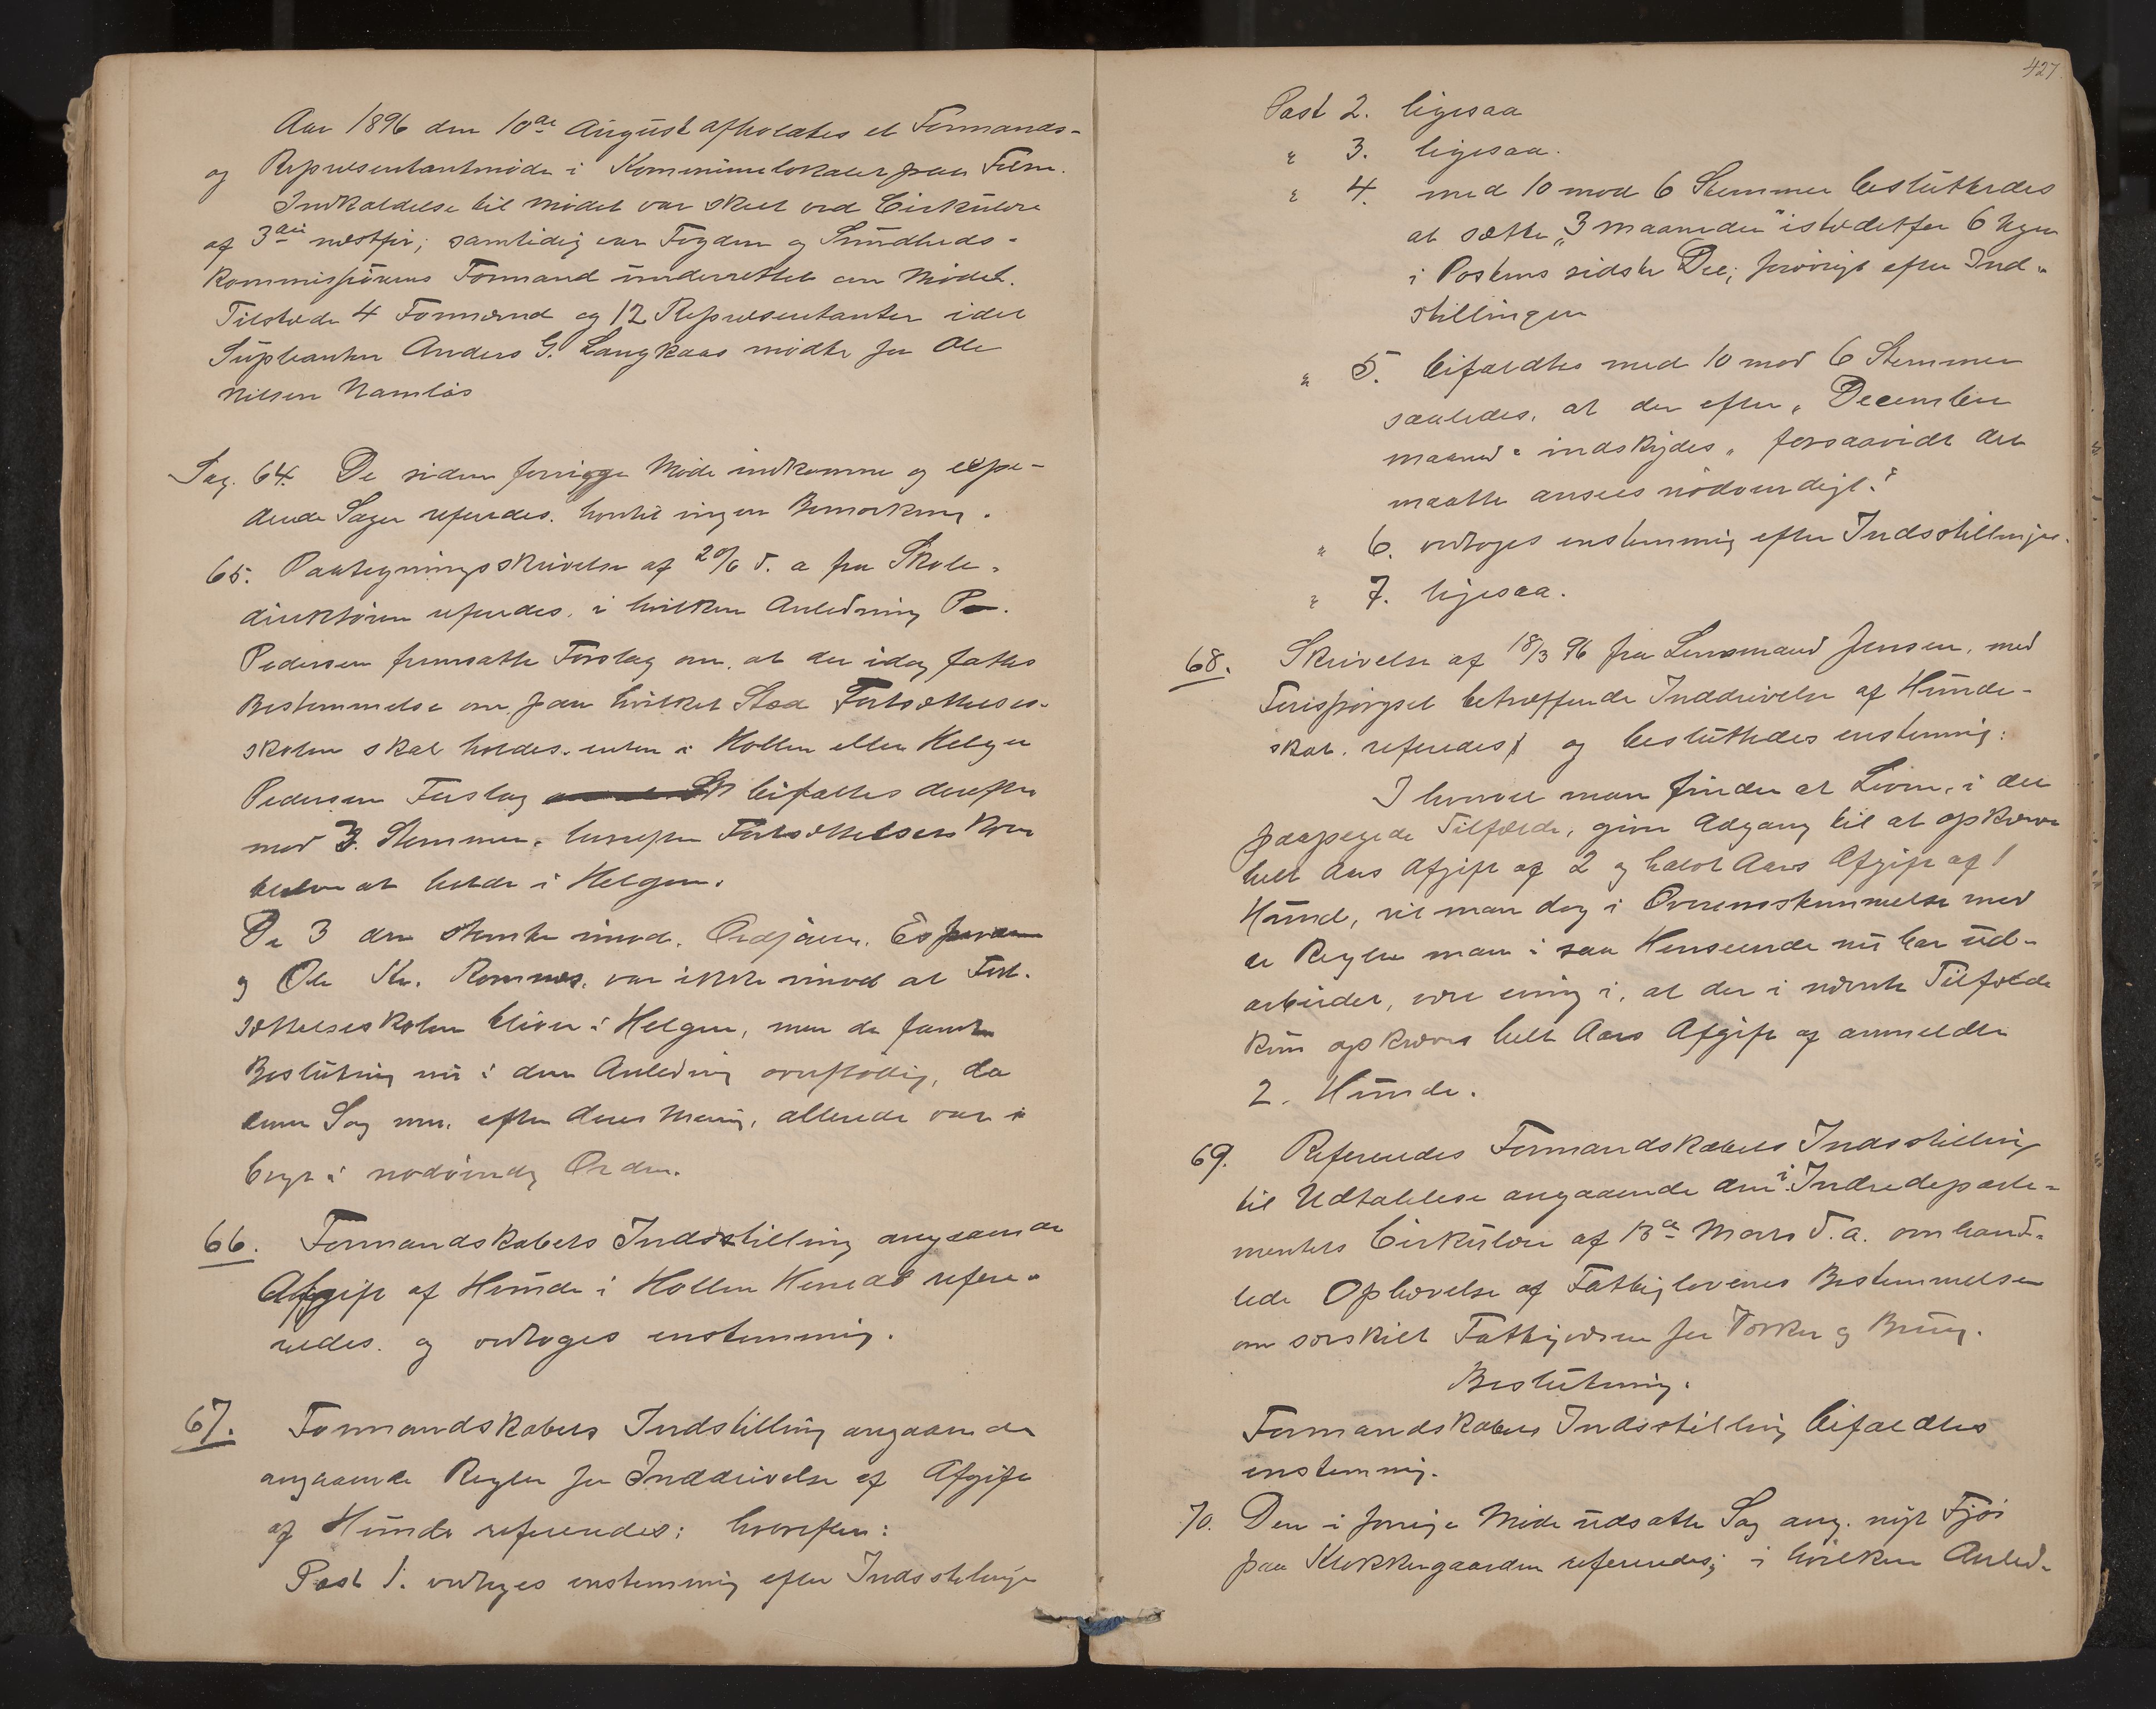 Aar 1896 den 10de August afholdtes et Formands-
og Repræsentantmøde i Kommunelokalet paa Ulem.
Indkaldelse til Mødet var skeet ved Cirkulære
af 3die næstfør; samtidig var Fogden og Sundheds-
kommissionens Formand underrettet om Mødet.
Tilstede 4 Formænd og 12 Repræsentanter idet
Supleanten Anders G. Langkaas mødte for Ole
Nilsen Namløs
Sag. 64. De siden forrige Møde indkomne og expe-
derede Sager referedes. hvortil ingen Bemærkning.
65. Paategningsskrivelse af 20/6 d. a fra Skole-
direktøren referedes, i hvilken Anledning P.
Pedersen fremsatte Forslag om, at der idag fattes
Bestemmelse om paa hvilket Sted Fortsættelses-
skolen skal holdes, enten i Hollen eller Helgen
Pedersen Forslag bifaltes derefter
mod 3. Stemmer, hvorefter Fortsættelsesskolen
bliver at holde i Helgen.
De 3 der stemte imod,
og Ole Kr. Romnes, var ikke imod at Fort-
sættelsesskolen bliver i Helgen, men de fandt
Beslutning nu i den Anledning overflødig, da
denne Sag nu, efter deres Mening, allerede var
bragt i nødvendig Orden.
66. Formandskabets Indstilling angaaende
Afgift af Hunde i Hollen Herred refere-
redes. og vedtoges enstemmig.
67. Formandskabets Indstilling angaaende
angaaende Regler for Inddrivelse af Afgift
af Hunde refereredes; hvorefter:
Post 1. vedtoges enstemmig efter Indstillingen
427.
Post 2. ligesaa
" 3. ligesaa.
" 4. med 10 mod 6 Stemmer besluttedes
at sætte "3 maaneder" istedetfor 6 Uger
i Postens sidste Del; forøvrigt efter Ind-
stillingen
" 5. bifaldtes med 10 mod 6 Stemmer
saaledes, at der efter "December
maaned" indskydes "forsaavidt det
maatte ansees nødvendigt."
" 6. vedtoges enstemmig efter Indstillingen.
" 7. ligesaa.
68. Skrivelse af 18/3 96 fra Lensmand Jensen, med
Forispørgsel betræffende Inddrivelse af Hunde-
skat, referedes og besluttedes enstemmig:
I hvorvel man finder at Loven, i det
paapegede Tilfælde, giver Adgang til at opkræve
helt Aars Afgift af 2 og halvt Aars Afgift af 1
Hund, vil man dog i Overensstemmelse med
de Regler man i saa Henseende nu har ud-
arbeidet, være enig i, at der i nævnte Tilfælde
kun opkræves helt Aars Afgift af anmeldte
2. Hunde.
69. Refereredes Formandskabets Indstilling
til Udtalelse angaaende den i Indredeparte-
mentets Cirkulære af 13de Mars d. a. omhand-
lede Ophævelse af Fattiglovenes Bestemmelser
om særskilt Fattigvæsen for Værker og Brug.
Beslutning.
Formandskabets Indstilling bifaldtes
enstemmig.
70. Den i forrige Møde udsatte Sag ang. nyt Fjøs
paa Klokkergaarden refereredes; i hvilken Anled-